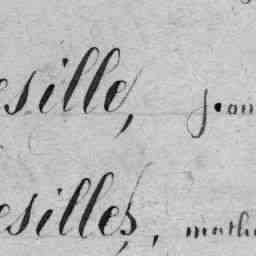 esille, jean
esilles, math